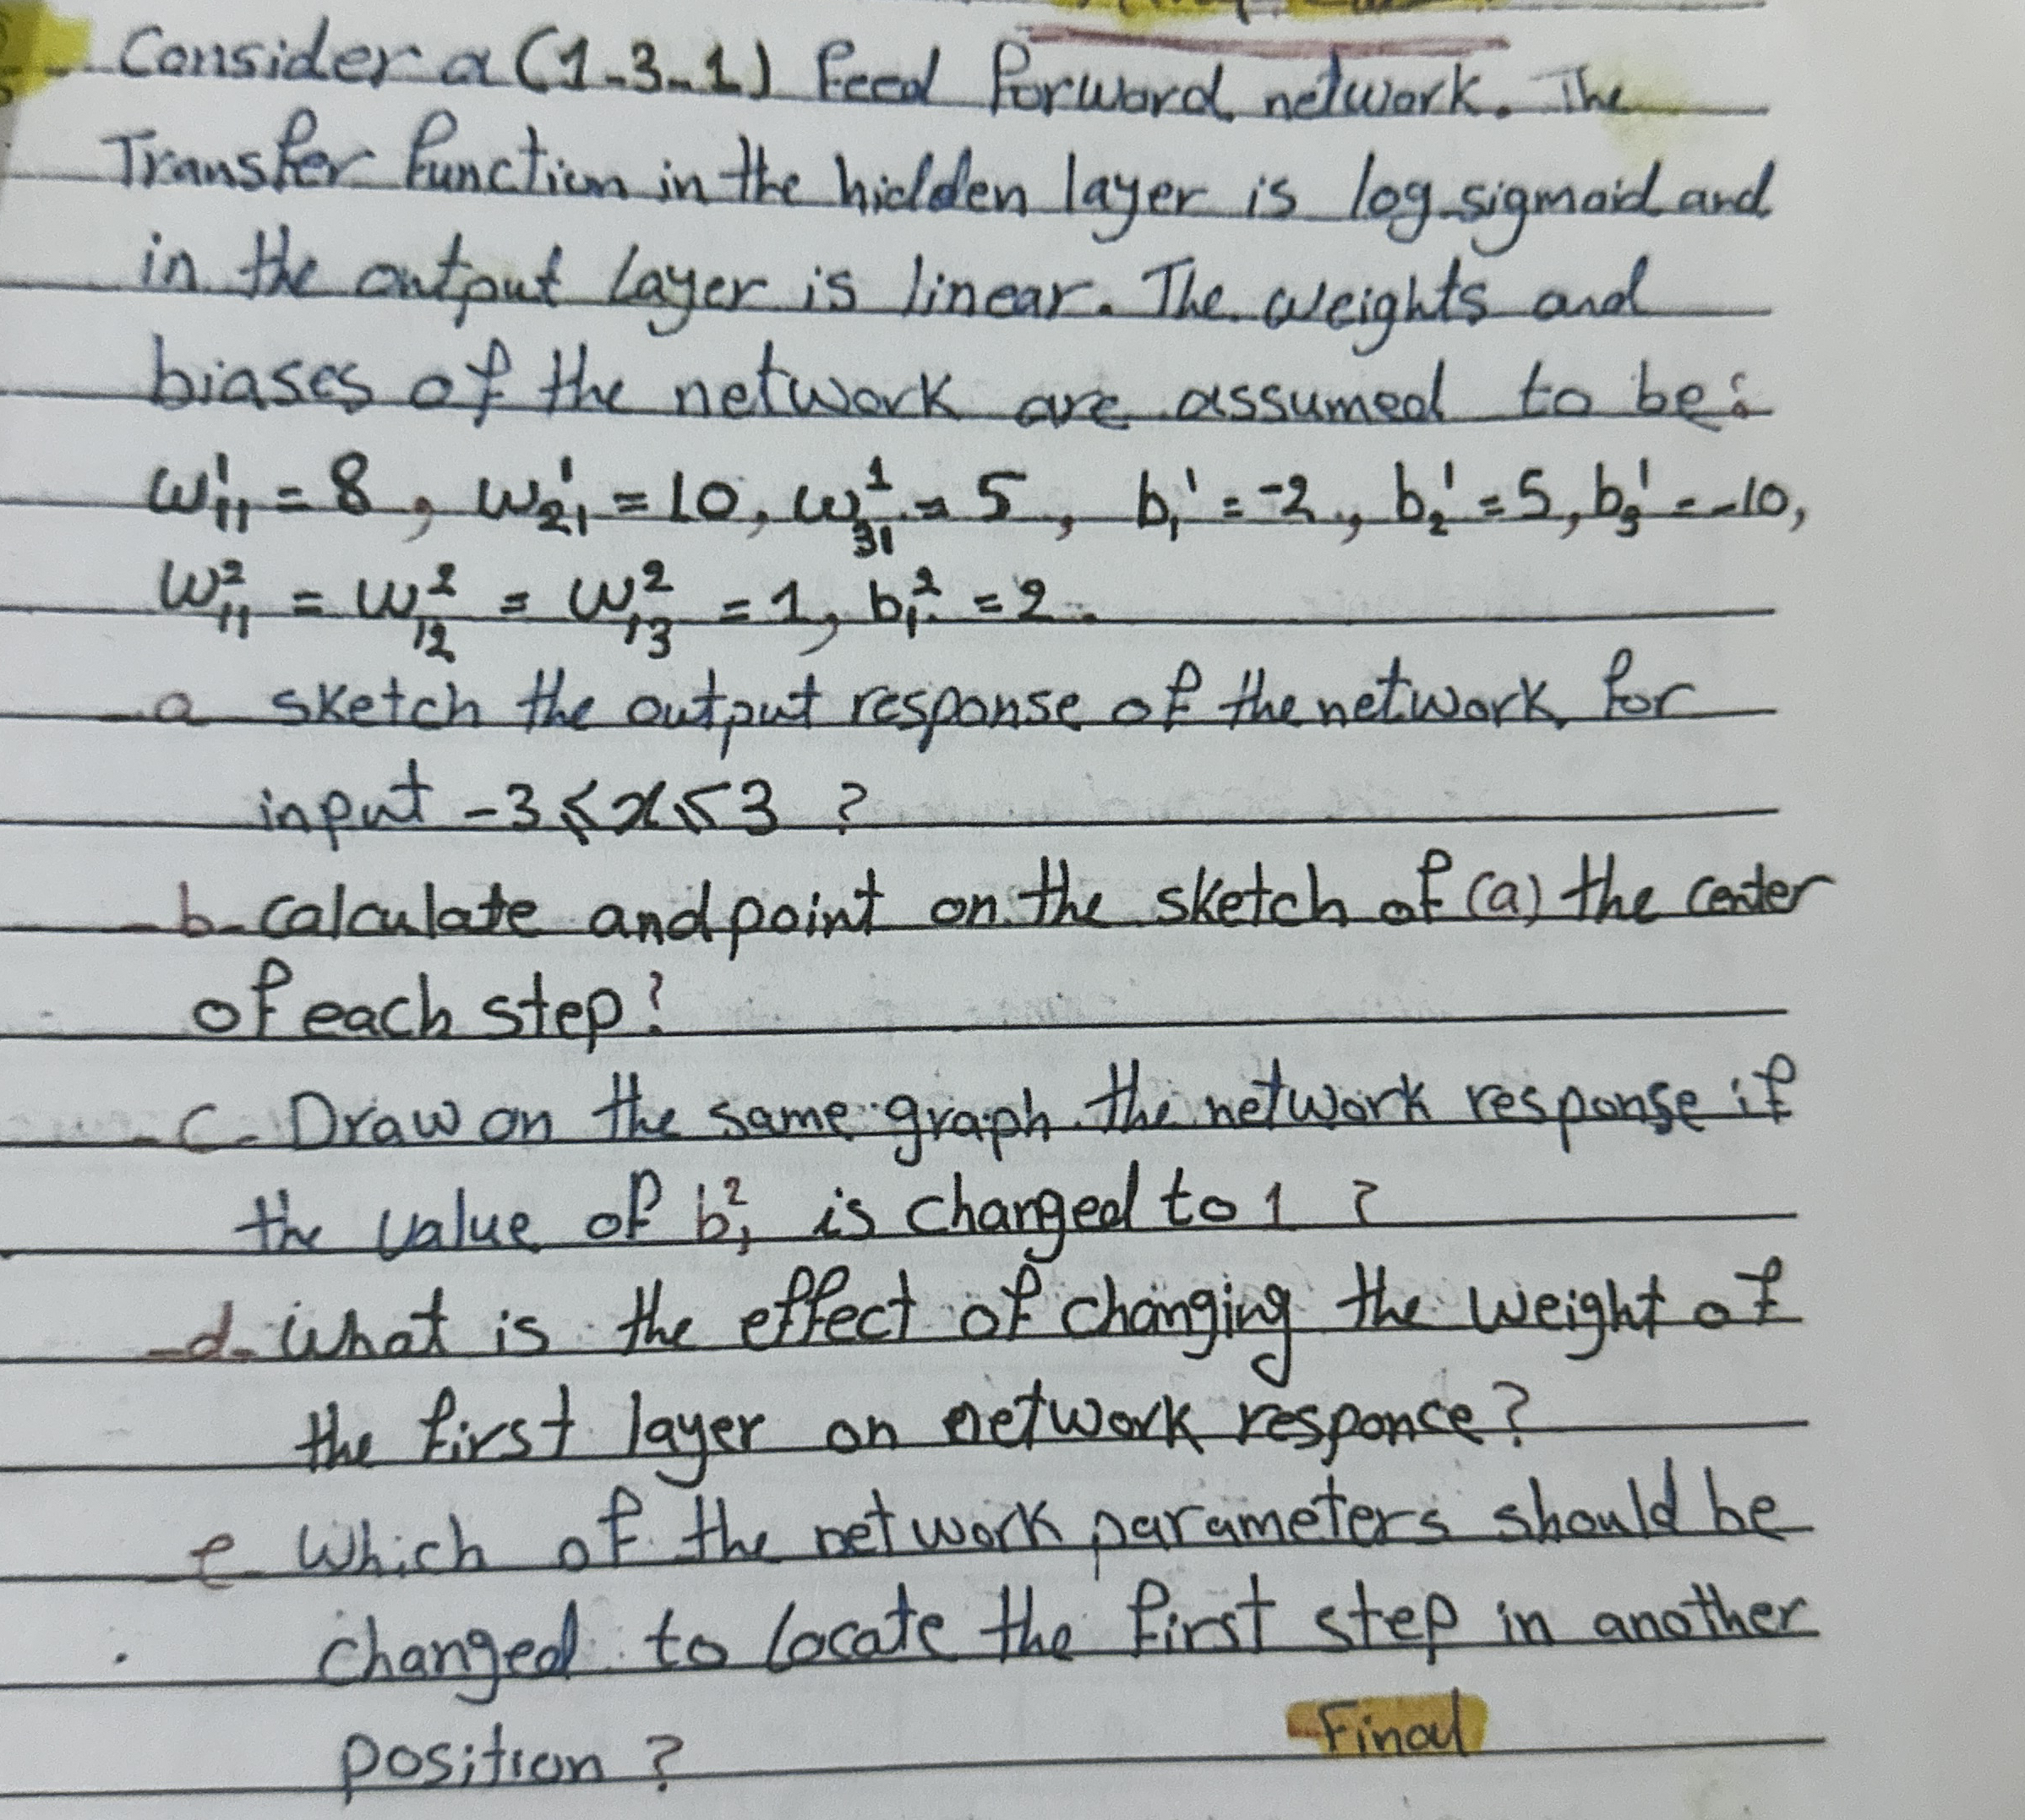 Consider a (1-3-1) feed forward network. The
Transfer function in the hidden layer is log-sigmoid and
in the output layer is linear. The weights and
biases of the network are assumed to be:
w¹₁₁ = 8, w¹₂₁ = 10, w¹₃₁ = 5, b₁¹ = -2, b₂¹ = 5, b₃¹ = -10,
w²₁₁ = w²₁₂ = w²₁₃ = 1, b₁² = 2.
a sketch the output response of the network for
input -3 ≤ x ≤ 3 ?
b- calculate and point on the sketch of (a) the center
of each step?
c- Draw on the same graph the network response if
the value of b₁² is changed to 1 ?
d- what is the effect of changing the weight of
the first layer on network responce?
e- which of the network parameters should be
changed to locate the first step in another
position ?
Final